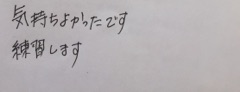 気持ちよかったです
練習します